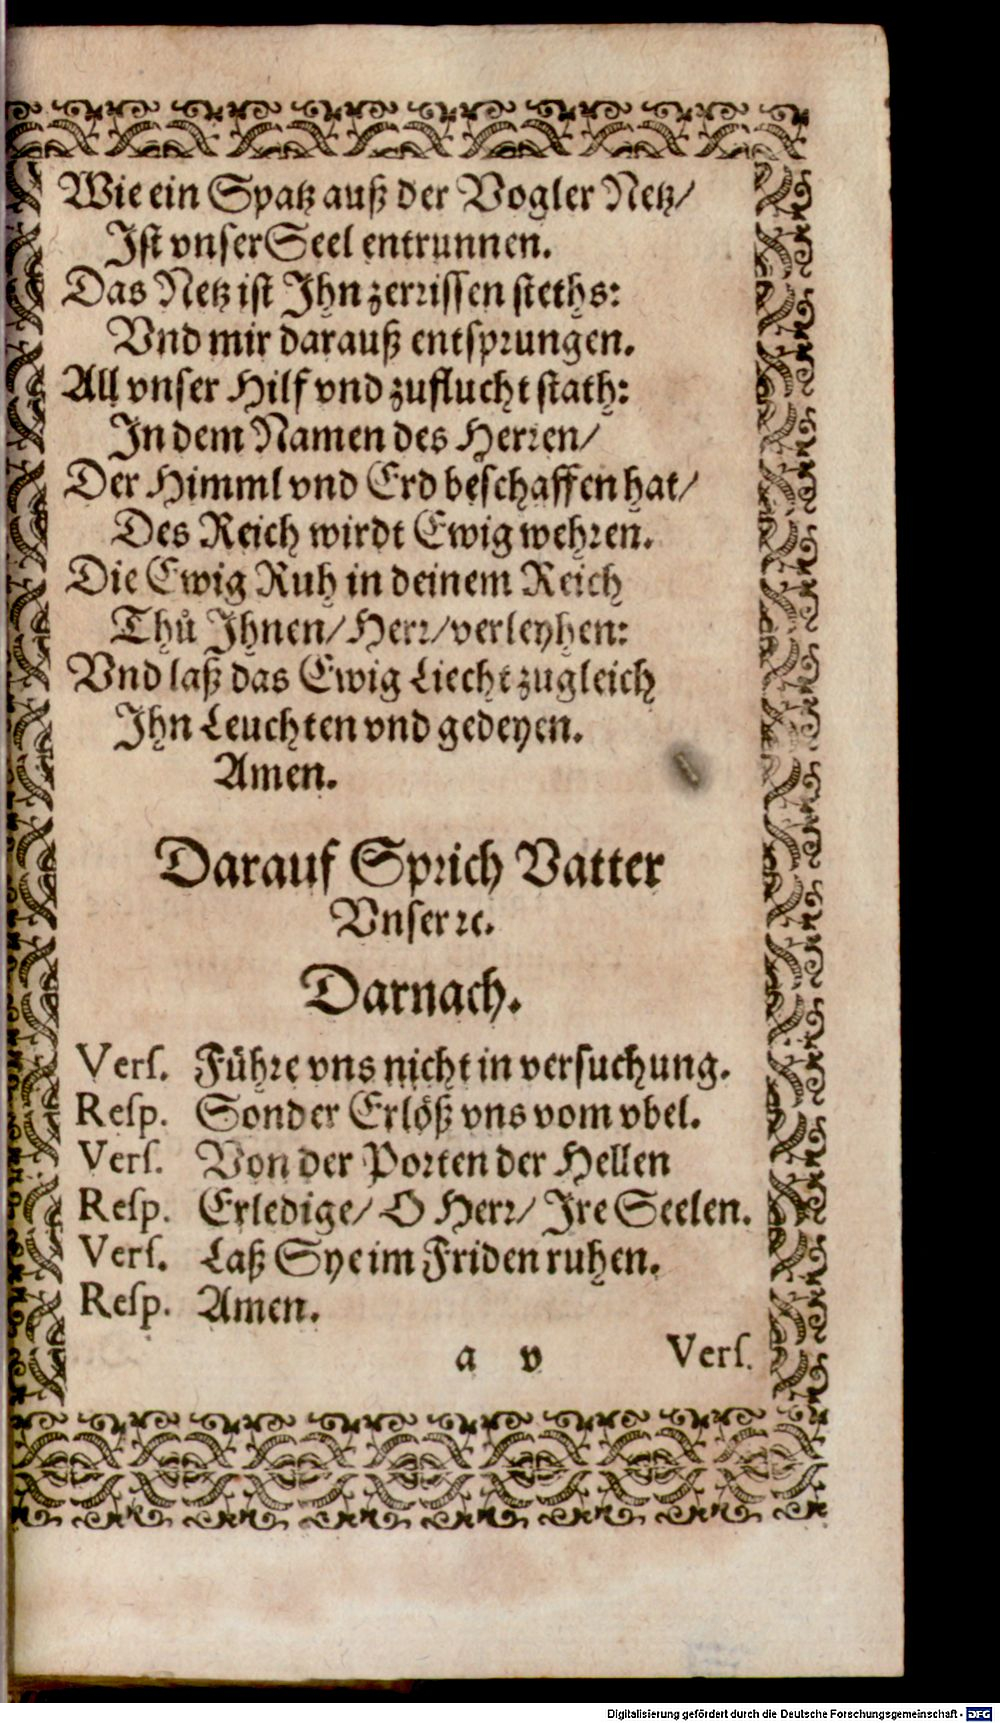 Wie ein Spatz auß der Vogler Netz/
Ist vnser Seel entrunnen.
Das Netz ist Ihn zerrissen steths:
Vnd mir darauß entsprungen.
All vnser Hilf vnd zuflucht stath:
In dem Namen des Herren/
Der Himml vnd Erd beschaffen hat/
Des Reich wirdt Ewig wehren.
Die Ewig Ruh in deinem Reich
Thů Ihnen/ Herr/ verleyhen:
Vnd laß das Ewig Liecht zugleich
Ihn Leuchten vnd gedeyen.
Amen.
Darauf Sprich Vatter
Vnser ꝛc.
Darnach.
Vers. Führe vns nicht in versuchung.
Resp. Sonder Erlöß vns vom vbel.
Vers. Von der Porten der Hellen
Resp. Erledige/ O Herr/ Ire Seelen.
Vers. Laß Sye im Friden ruhen.
Resp. Amen.
a v Vers.
Digitalisierung gefördert durch die Deutsche Forschungsgemeinschaft - DFG